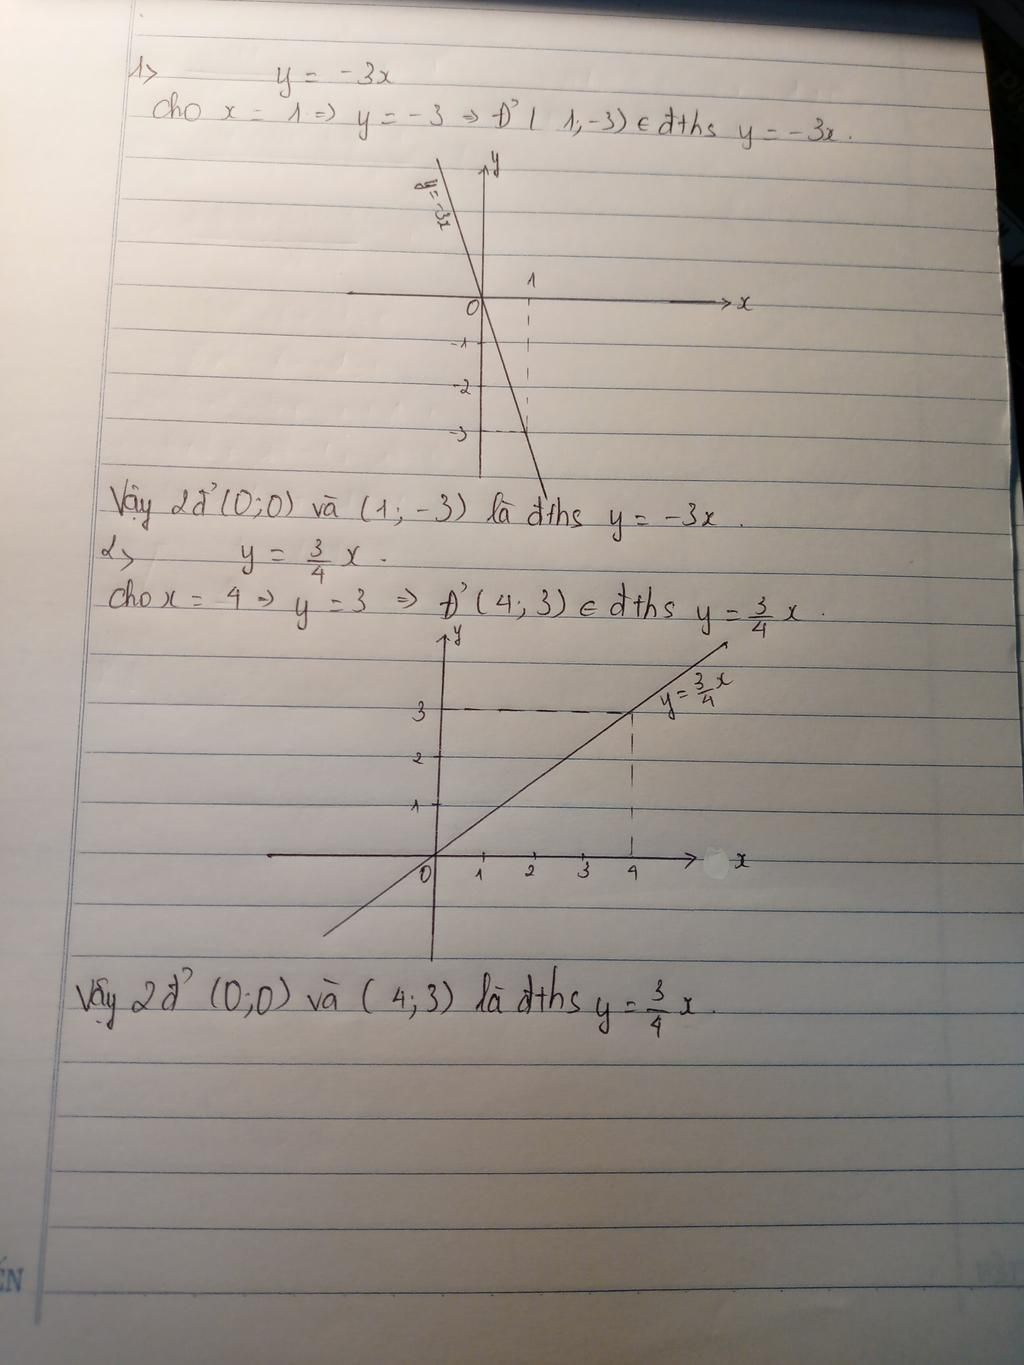 1>
y = -3x
Cho x = 1 => y = -3 => Đ' ( 1;-3) ∈ đths y = -3x.
y
y=-3x
1
0
x
-1
-2
-3
Vậy 2đ' (0;0) và (1;-3) là đths y = -3x.
2>
y = 3/4 x.
Cho x = 4 => y = 3 => Đ' (4;3) ∈ đths y = 3/4 x.
y
y = 3/4 x
3
2
1
0 1 2 3 4 x
Vậy 2đ' (0;0) và (4;3) là đths y = 3/4 x.
ẾN